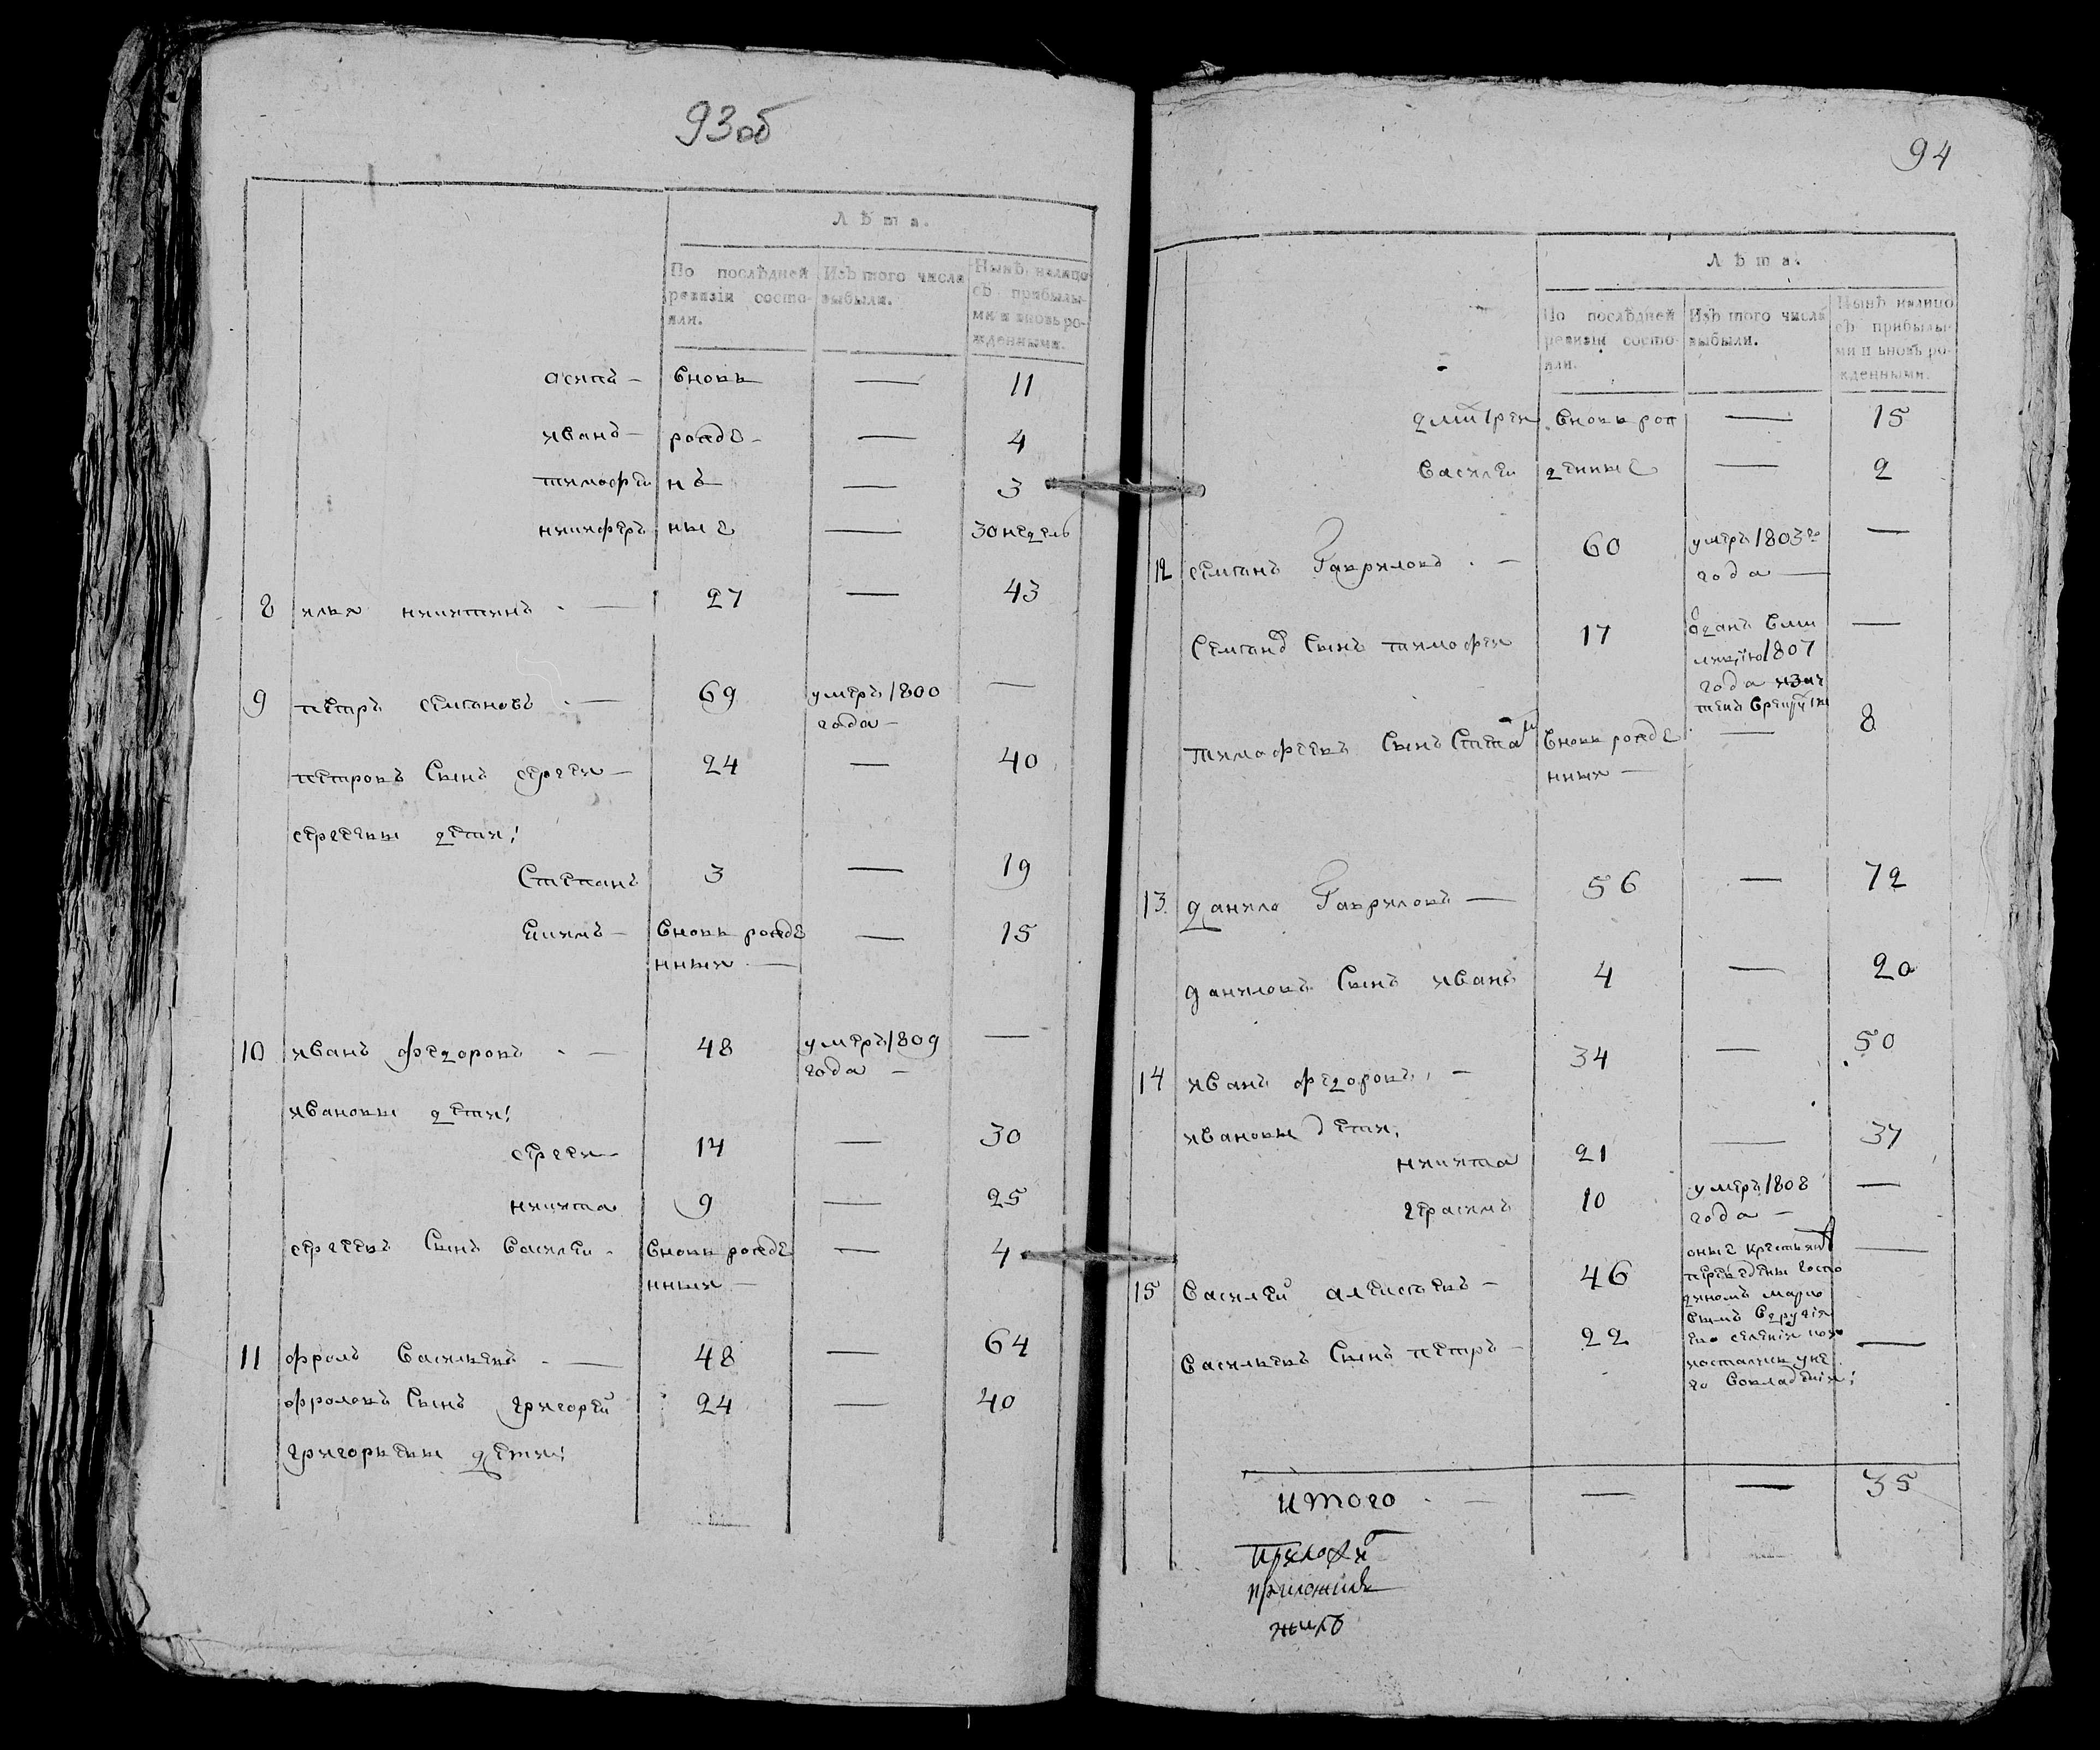 93об
Лѣта.
По послѣдней ревизіи состояли.
Изъ того числа выбыли.
Нынѣ налицо съ прибылыми и вновь рожденными.
осипъ — вновь — 11
иванъ — рожде — — 4
тимофеи нъ — 3
никифоръ ные — 30 недель
8 илья никитинъ . — 27 — 43
9 петръ семеновъ . — 69 умеръ 1800 —
года —
петровъ сынъ сергеи — 24 — 40
сергеевы дети:
Степанъ 3 — 19
екимъ — вновь рожде — 15
нныи —
10 иванъ федоровъ . — 48 умеръ 1809 —
года —
ивановы дети:
сергеи — 14 — 30
никита 9 — 25
сергеевъ сынъ василеи . вновь рожде — 4
нныи —
11 фролъ васильевъ . — 48 — 64
фроловъ сынъ григореи 24 — 40
григорьевы дети:
94
Лѣта.
По послѣдней ревизіи состояли.
Изъ того числа выбыли.
Нынѣ налицо съ прибылыми и вновь рожденными.
дмитреи вновь рож — 15
василеи денные — 2
12 семенъ Гавриловъ . — 60 умеръ 1803го —
года —
Семенъ сынъ тимофеи 17 отданъ вми —
лицию 1807
года
тимофеевъ сынъ вновь рожде — 8
нныи —
13 данило Гавриловъ — 56 — 72
даниловъ сынъ иванъ 4 — 20
14 иванъ федоровъ — 34 — 50
ивановы дети:
никита 21 — 37
герасимъ 10 умеръ 1808 —
года —
15 василеи алексеевъ — 46 оные крестьяня —
переведены госпо
диномъ
вымъ вдругія
его селения
васильевъ сынъ петръ — 22 —
го вовладения:
итого . — — — 35